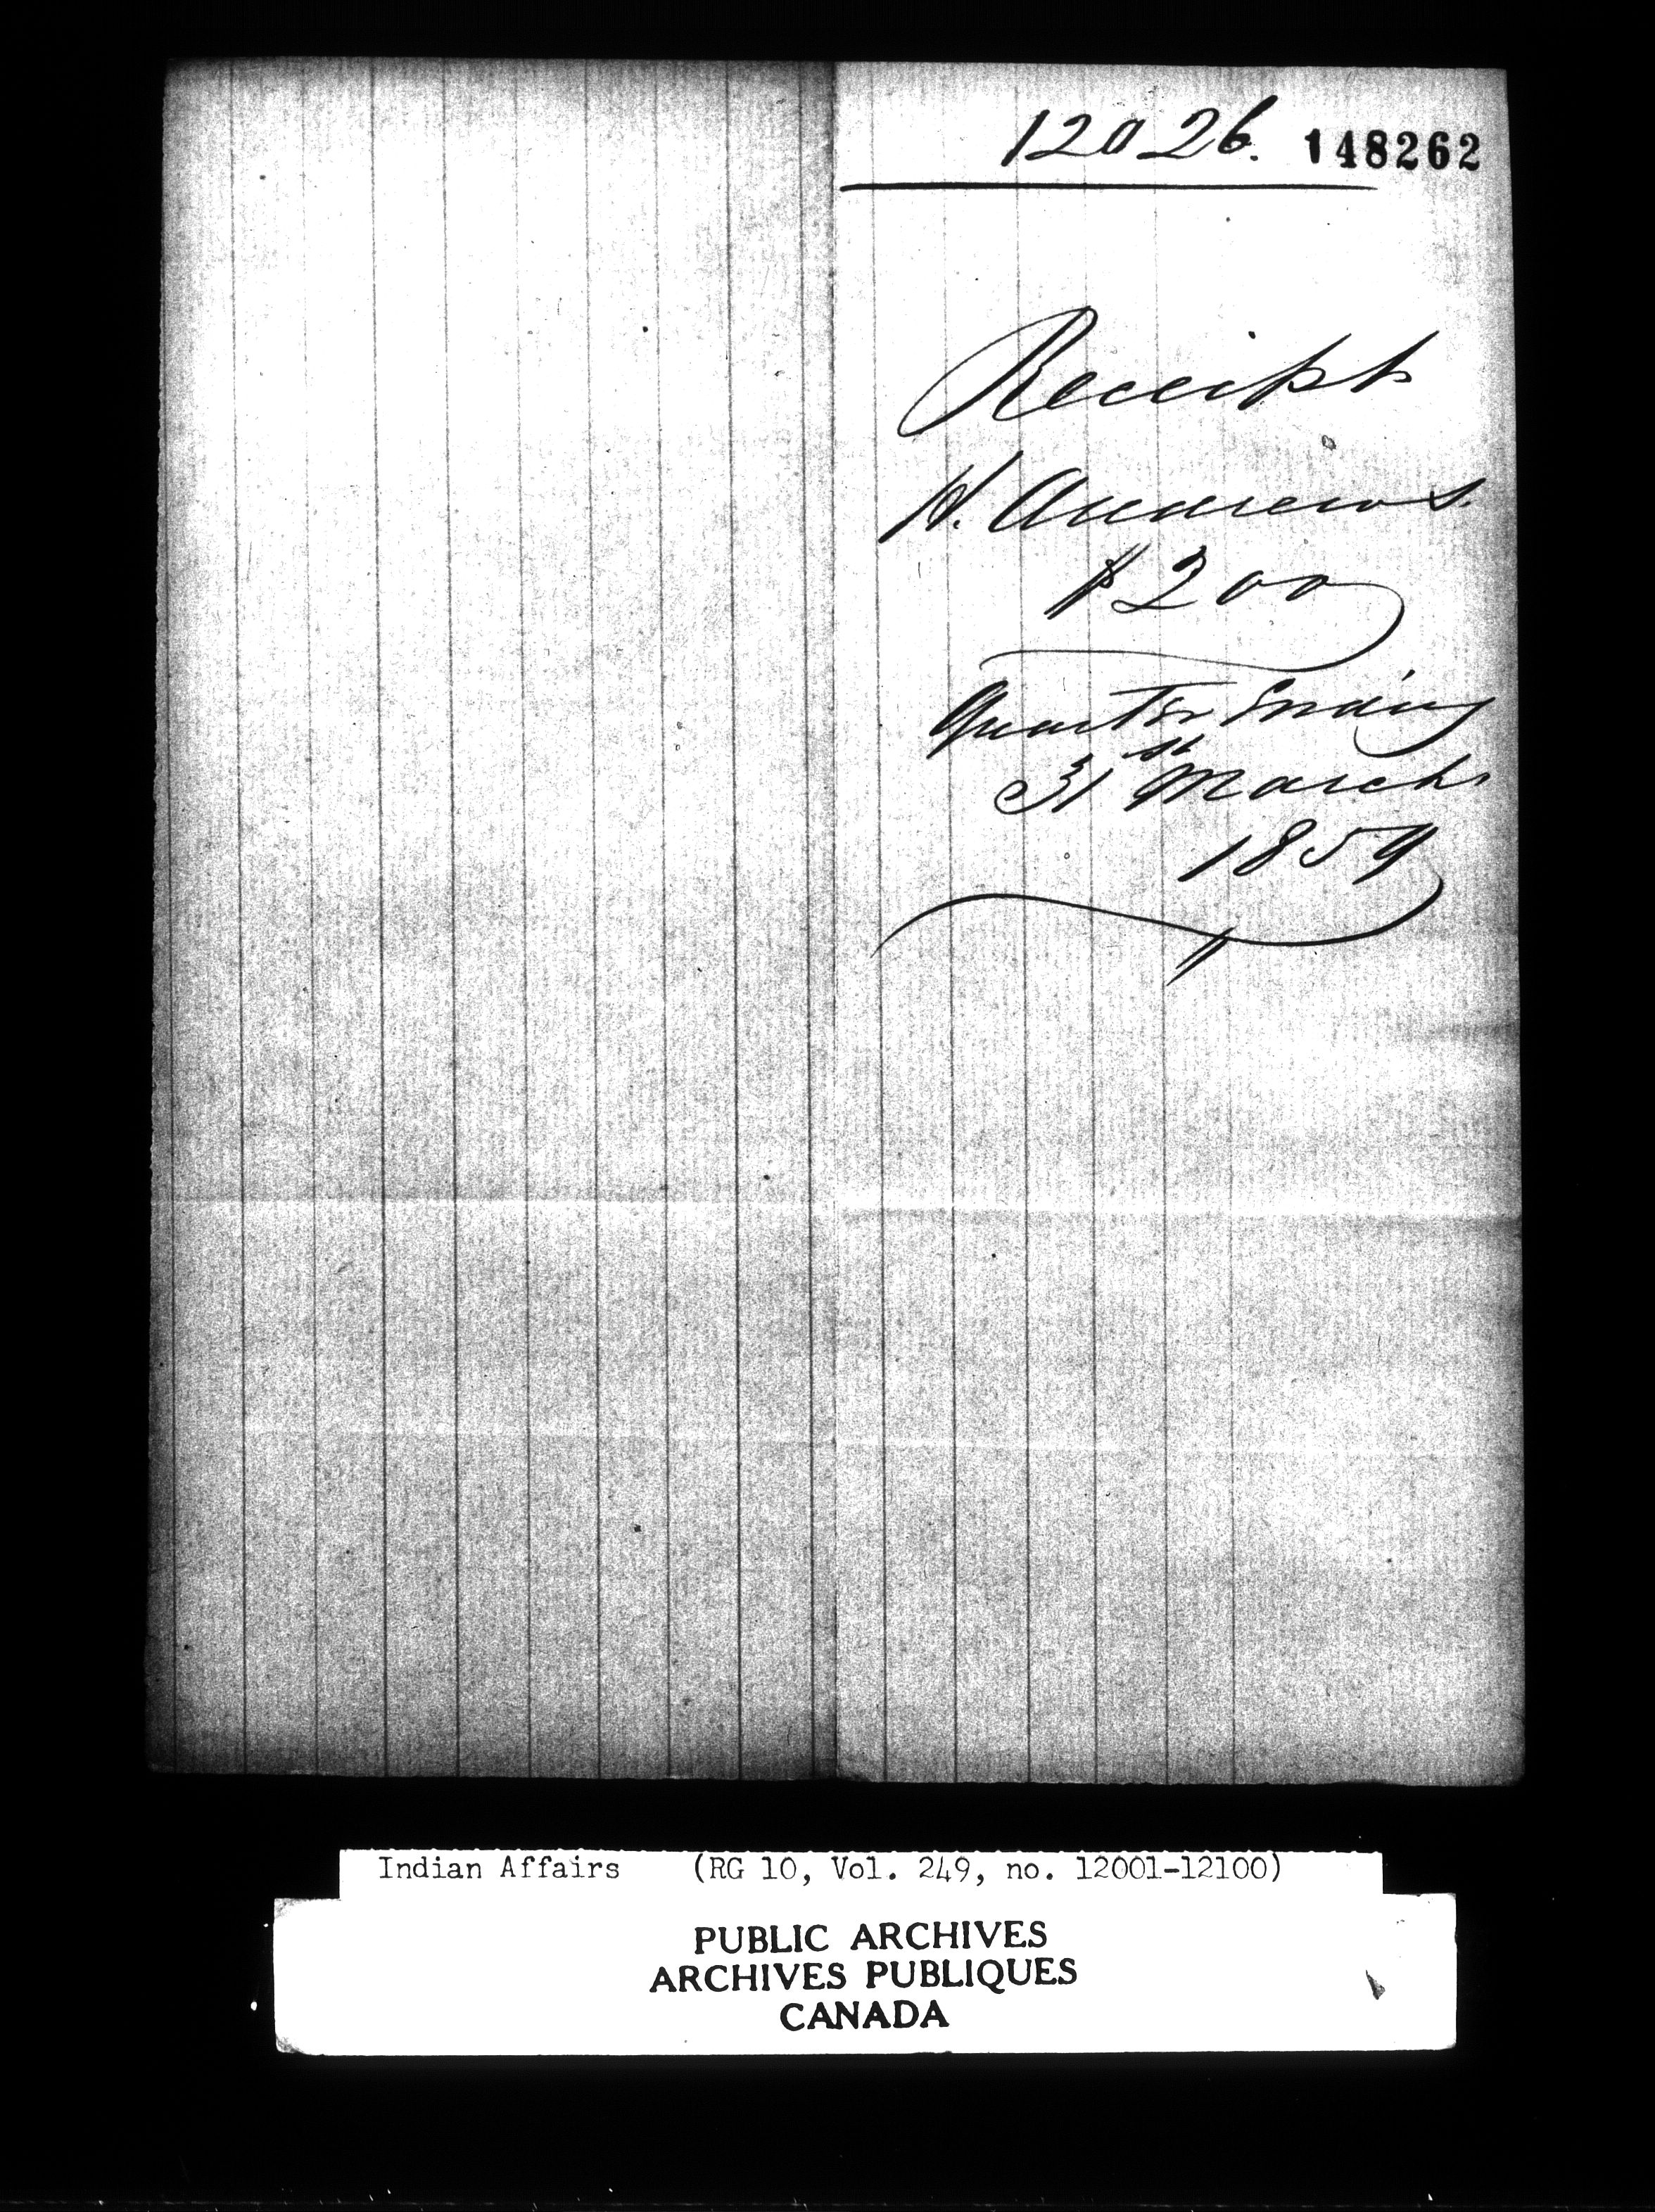 12026. 148262
Receipt
H. Andrews.
$200
Quarter Ending
31st March
1859
Indian Affairs (RG 10, Vol. 249, no. 12001-12100)
PUBLIC ARCHIVES
ARCHIVES PUBLIQUES
CANADA